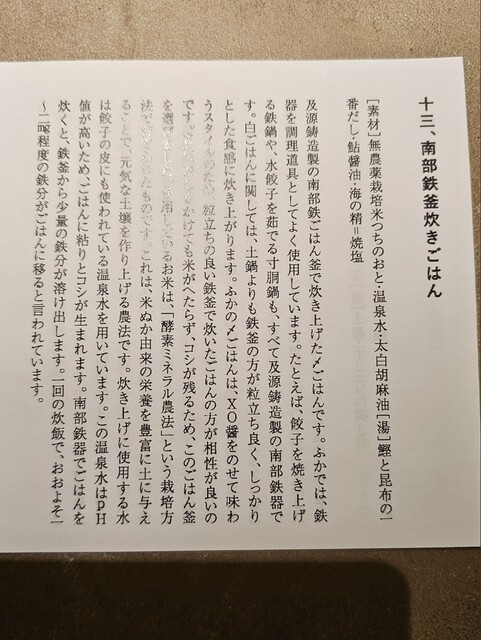 十三、南部鉄釜炊きごはん
[素材]無農薬栽培米つちのおと・温泉水・太白胡麻油[湯]鰹と昆布の一
番だし・鮎醬油・海の精=焼塩
及源鋳造製の南部鉄ごはん釜で炊き上げた〆ごはんです。ふかでは、鉄
器を調理道具としてよく使用しています。たとえば、餃子を焼き上げ
る鉄鍋や、水餃子を茹でる寸胴鍋も、すべて及源鋳造製の南部鉄器で
す。白ごはんに関しては、土鍋よりも鉄釜の方が粒立ち良く、しっかり
とした食感に炊き上がります。ふかの〆ごはんは、XO醬をのせて味わ
うスタイルのため、粒立ちの良い鉄釜で炊いたごはんの方が相性が良いの
です。かけても米がへたらず、コシが残るため、このごはん釜
を選ているお米は、「酵素ミネラル農法」という栽培方
法でたものです。これは、米ぬか由来の栄養を豊富に土に与え
ることで、元気な土壌を作り上げる農法です。炊き上げに使用する水
は餃子の皮にも使われている温泉水を用いています。この温泉水はpH
値が高いため、ごはんに粘りとコシが生まれます。南部鉄器でごはんを
炊くと、鉄釜から少量の鉄分が溶け出します。一回の炊飯で、おおよそ一
〜二mg程度の鉄分がごはんに移ると言われています。